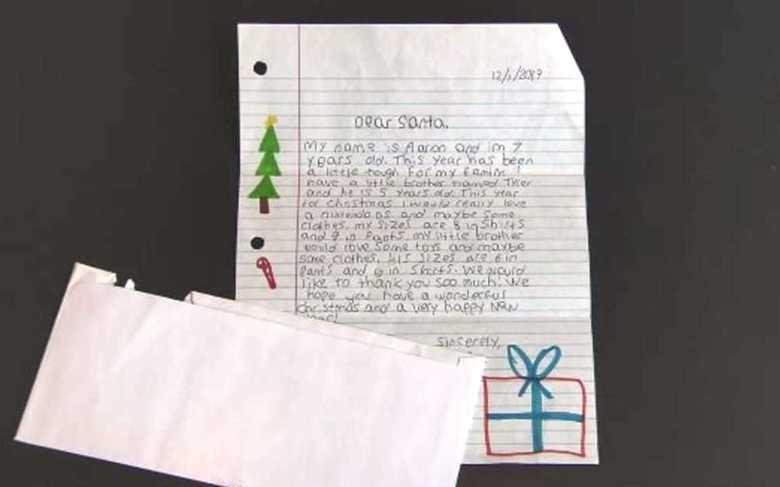 12/1/2019
Dear Santa.
My name is Aaron and im 7
years old. This year has been
a little tough for my family. I
have a little brother named Tyler
and he is 5 years old. This year
for christmas I would really love
a nintendo DS and maybe some
clothes. my sizes are 8 in Shirts
and 9 in Pants. my little brother
would love some toys and maybe
some clothes. his sizes are 6 in
Pants and 6 in Shirts. We would
like to thank you soo much. We
hope you have a wonderful
christmas and a very happy New
Sincerely,